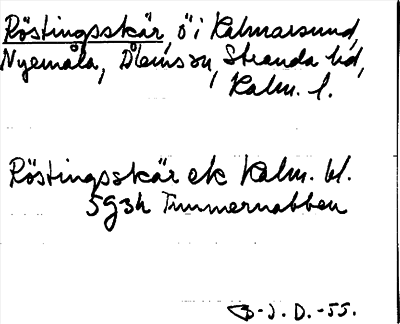 Röstingsskär, ö i Kalmarsund,
Nyemåla, Ålems sn, Stranda hd,
Kalm. l.
Röstingsskär ek Kalm. bl.
5g3h Timmernabben
B-J. D. -55.